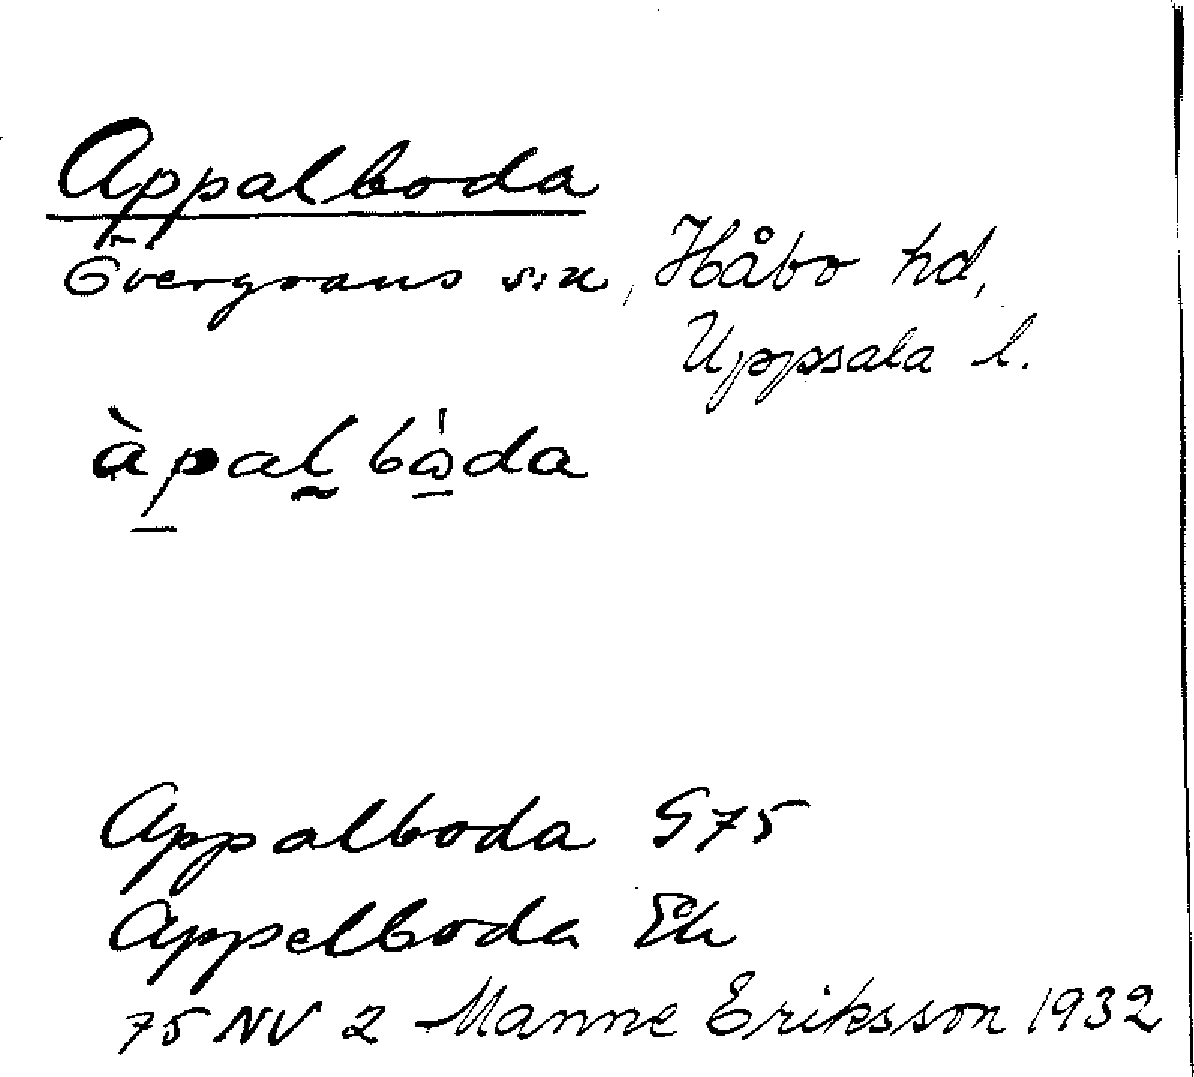 Appalboda
Övergrans s:n, Håbo hd,
Uppsala l.
àpal bòda
Appalboda G75
Appelboda Ek
75 NV 2 Manne Eriksson 1932